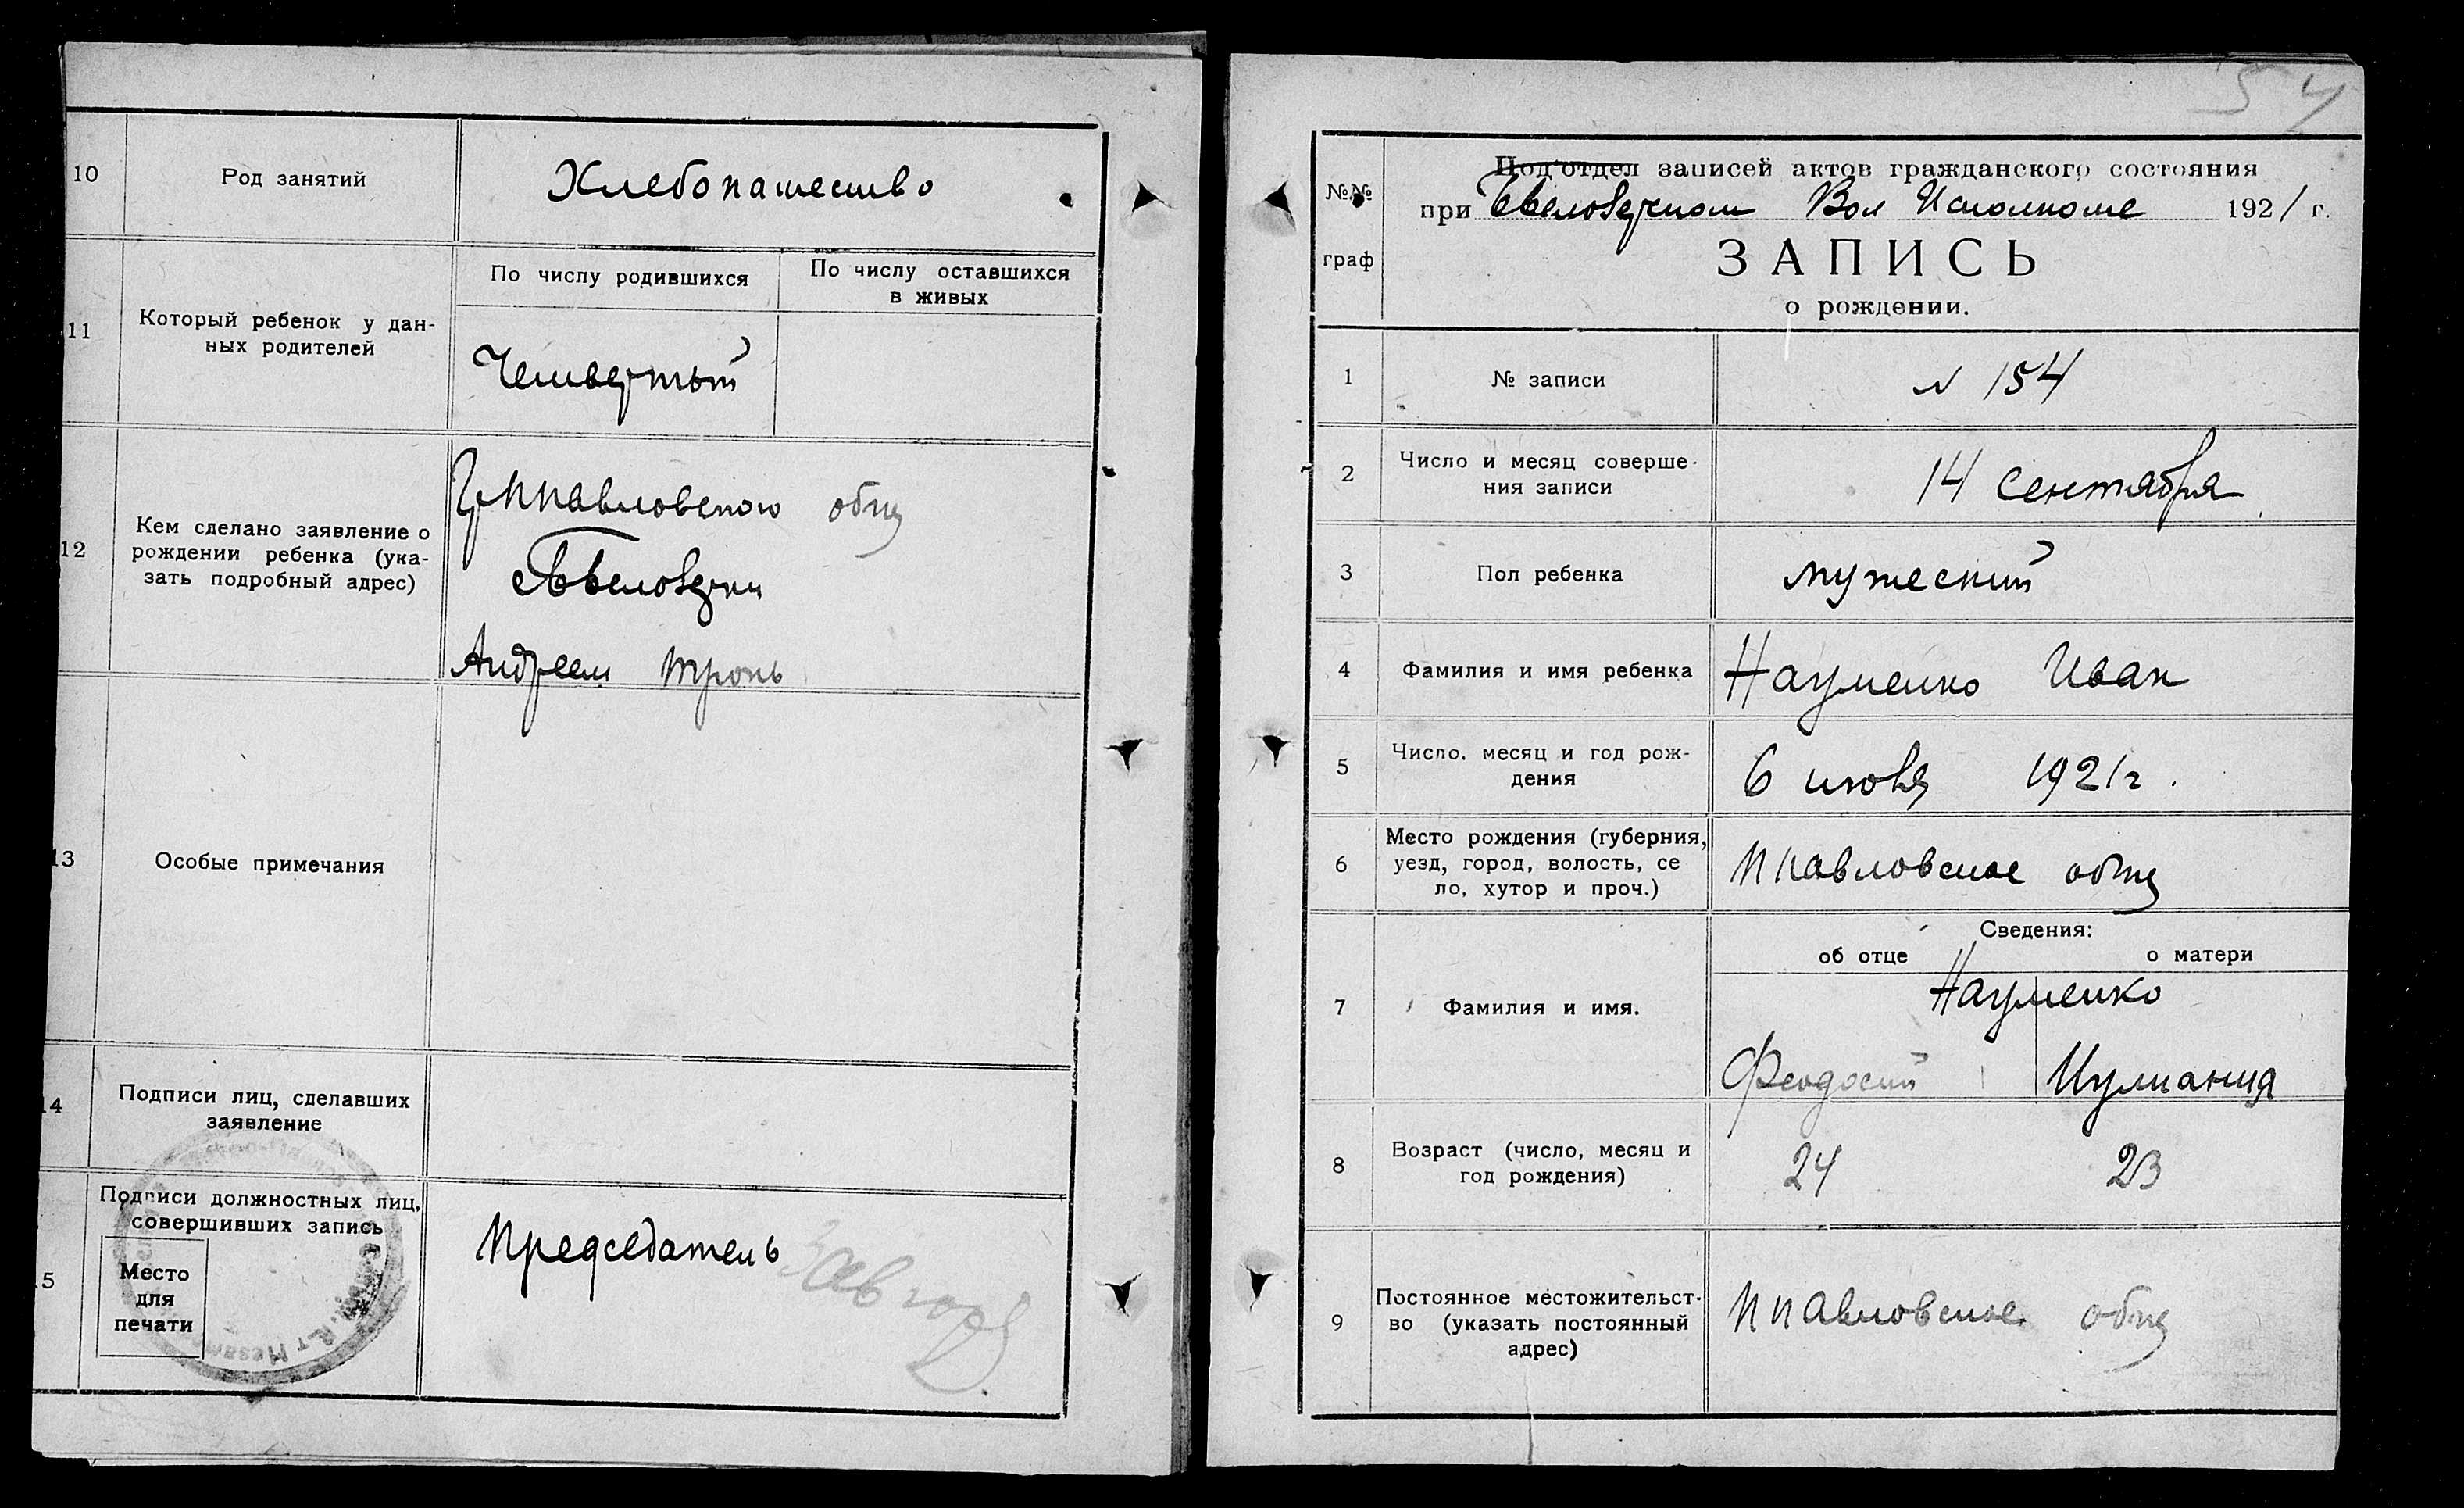 10
Род занятий
Хлебопашество
11
Который ребенок у дан-
ных родителей
По числу родившихся
По числу оставшихся
в живых
Четвертый
12
Кем сделано заявление о
рождении ребенка (ука-
зать подробный адрес)
общ
Андреем
13
Особые примечания
14
Подписи лиц, сделавших
заявление
15
Подписи должностных лиц,
совершивших запись
Место
для
печати
Председатель
54
№№
граф
Под'отдел записей актов гражданского состояния
при Вол Исполкоме 1921 г.
ЗАПИСЬ
о рождении.
1
№ записи
N 154
2
Число и месяц соверше-
ния записи
14 Сентября
3
Пол ребенка
мужеский
4
Фамилия и имя ребенка
Науменко Иван
5
Число, месяц и год рож-
дения
6 1921 г.
6
Место рождения (губерния,
уезд, город, волость, се
ло, хутор и проч.)
Ппавловское общ
7
Фамилия и имя.
Сведения:
об отце
о матери
Науменко
Феодосий
Иулиания
8
Возраст (число, месяц и
год рождения)
24
23
9
Постоянное местожительст-
во (указать постоянный
адрес)
Ппавловское общ